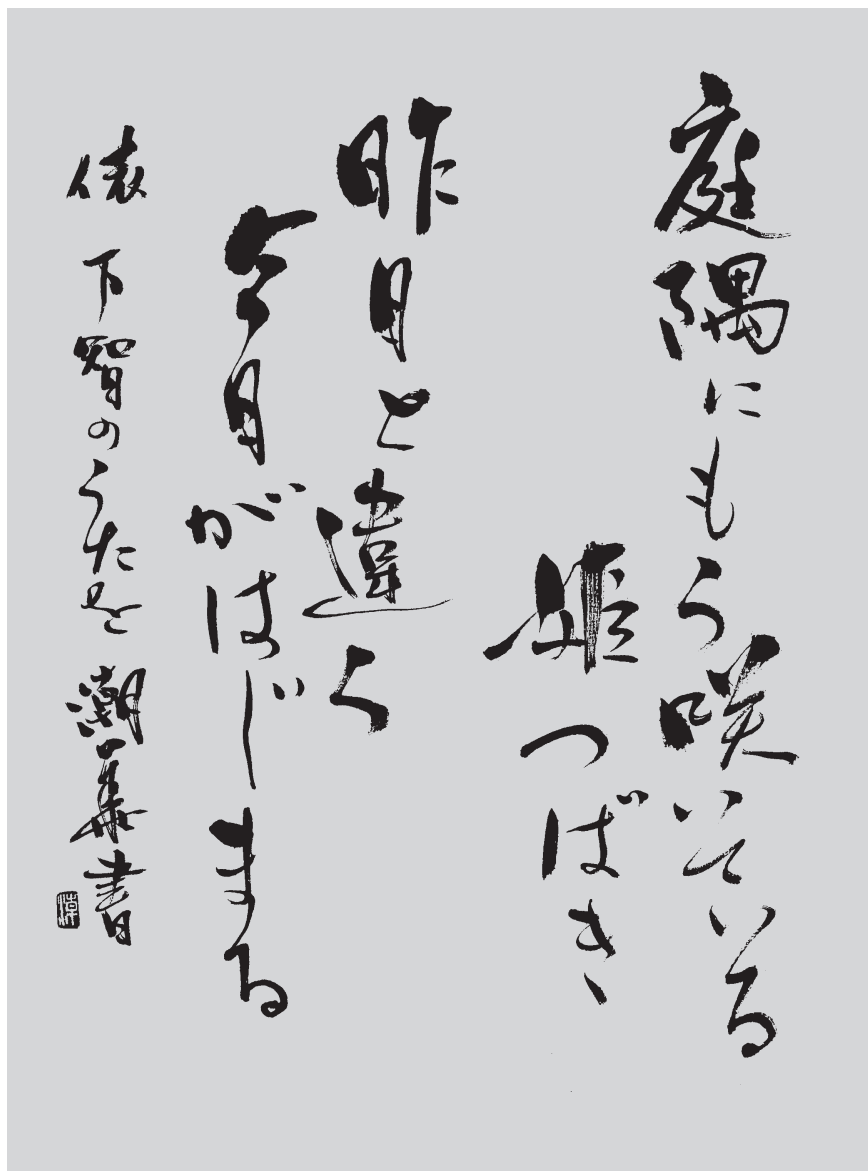 庭隅にもう咲いている
姫つばき
昨日と違う
今日がはじまる
俵 万智のうたを 潮華書